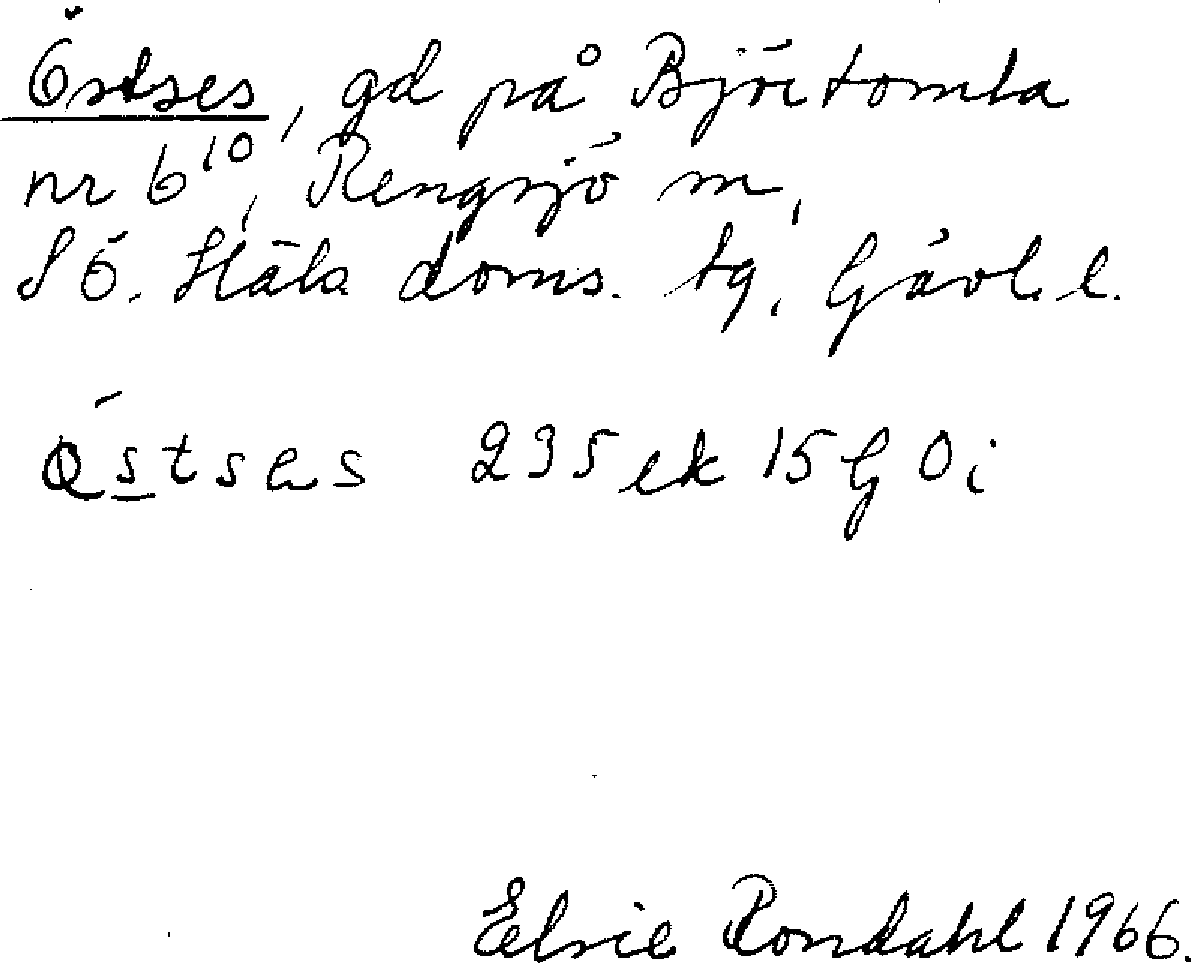 Östses, gd på Björtomta
nr 6¹⁰, Rengsjö sn,
SÖ. Häls doms. tg, Gävl. l.
Östses 23 Sek 15 G 0i
Elsie Rondahl 1966.